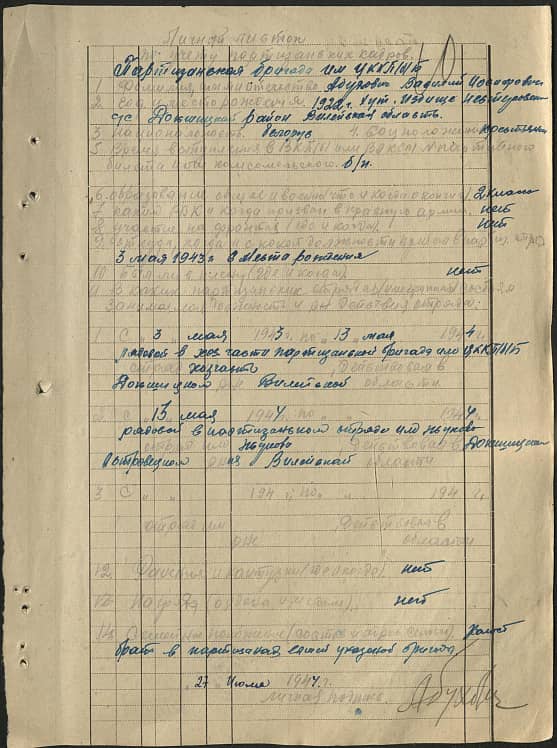 Личной листок
по учету партизанских кадров
Партизанская бригада им ЦККП/б/Б
1. Фамилия, имя и отчество Абухович Василий Иосифович
2. Год и место рождения 1922г. хут.
с/с Докшицкий район Вилейская область.
3. Национальность белорус 4. Соц положение крестьянин
5. Время вступления в ВКП(б) или ВЛКСМ № партийного
билета или комсомольского б/п.
6. образование общее и военное что и когда окончил 2 класса
7. каким РВК и когда призван в красную армию нет
8. участие на фронтах (где и когда) нет
9. откуда, когда и с какой должности прибыл в парт. отряд
3 мая 1943г. с места рождения
10. был ли в плену (где и когда) нет
11. В каких партизанских отрядах
занимал должность и р-н действия отряда:
1. С 3 мая 1943 по 13 мая 1944 г.
рядовой в хоз части партизанской бригады им ЦККП/б/Б
отряд хозчасть действовал в
Докшицком р-н Вилейской области.
2. С 13 мая 1944 по 194
рядовой в партизанском отряде им Жукова
отряд им Жукова действовал в Докшицком
Островецком р-на Вилейской области
3. С " " 194 г. по " " 194 г.
отряд им действовал в
р-н области
12. Ранения и контузии (где и когда) нет
13. Награды нет
14. Семейное положение холост
брат в партизанах
27 Июня 1944 г.
личная подпись Абухович